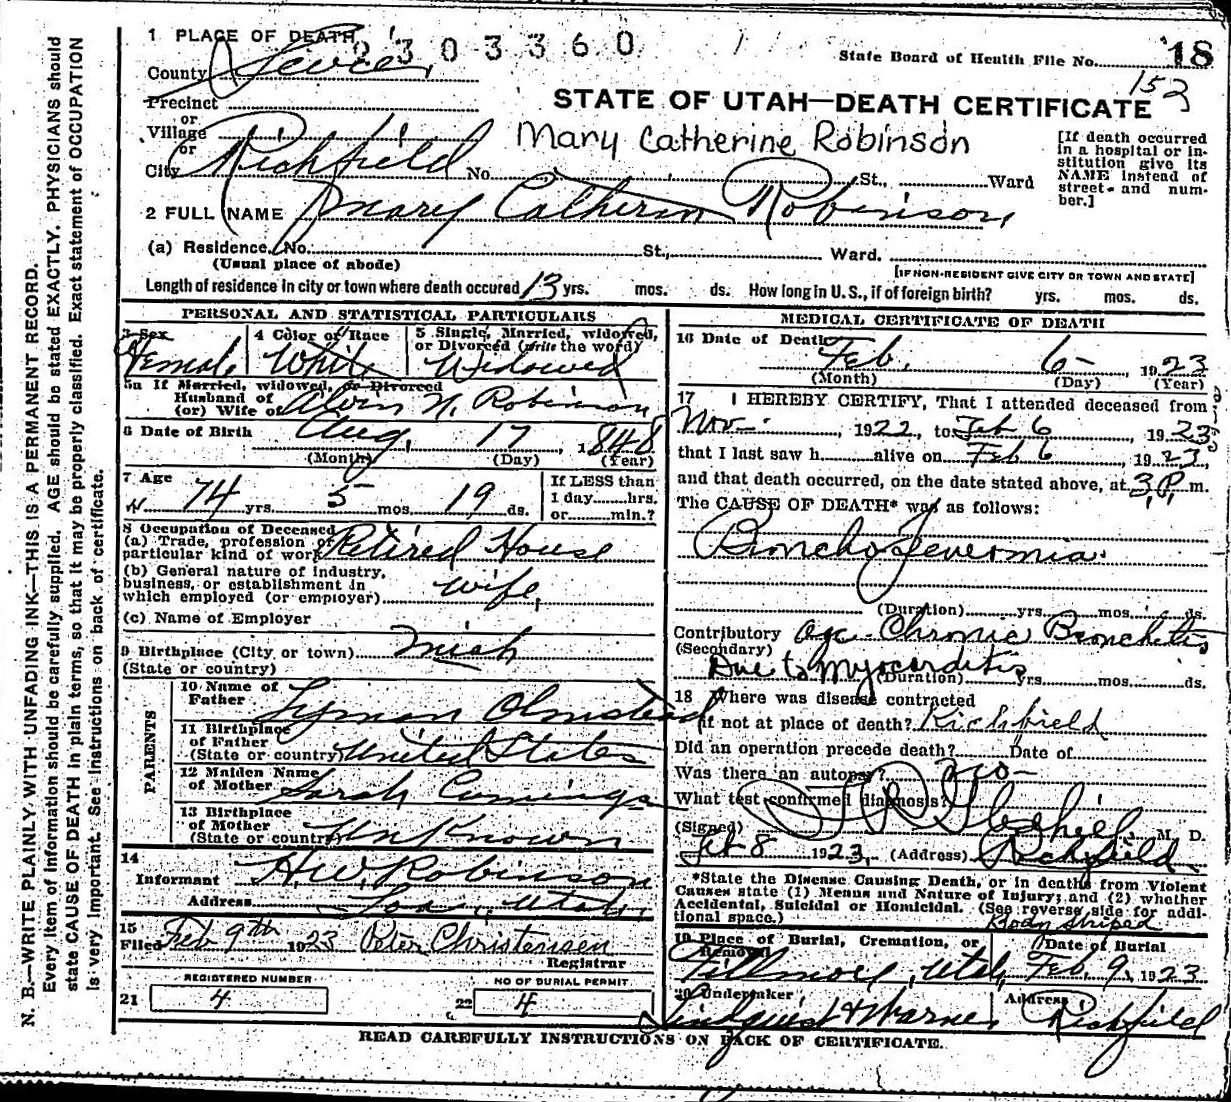 N. B.—WRITE PLAINLY WITH UNFADING INK—THIS IS A PERMANENT RECORD.
Every item of information should be carefully supplied. AGE should be stated EXACTLY. PHYSICIANS should
state CAUSE OF DEATH in plain terms, so that it may be properly classified. Exact statement of OCCUPATION
is very important. See instructions on back of certificate.
1 PLACE OF DEATH
2303360
State Board of Health File No. 18
153
County Sevier
Precinct
or
Village
or
City Richfield No. St., Ward
STATE OF UTAH—DEATH CERTIFICATE
Mary Catherine Robinson
[If death occurred
in a hospital or in-
stitution give its
NAME instead of
street and num-
ber.]
2 FULL NAME Mary Catherin Robinson
(a) Residence, No. St., Ward.
(Usual place of abode)
[IF NON-RESIDENT GIVE CITY OR TOWN AND STATE]
Length of residence in city or town where death occured 13 yrs. mos. ds. How long in U. S., if of foreign birth? yrs. mos. ds.
PERSONAL AND STATISTICAL PARTICULARS
3 Sex
Female
4 Color or Race
White
5 Single, Married, widowed,
or Divorced (write the word)
Widowed
5a If Married, widowed, or Divorced
Husband of
(or) Wife of Alvin N. Robinson
6 Date of Birth Aug. 17, 1848
(Month) (Day) (Year)
7 Age
74 yrs. 5 mos. 19 ds.
If LESS than
1 day hrs.
or min.?
8 Occupation of Deceased
(a) Trade, profession or
particular kind of work Retired House
(b) General nature of industry,
business, or establishment in
which employed (or employer) wife,
(c) Name of Employer
9 Birthplace (City, or town) Mich
(State or country)
PARENTS
10 Name of
Father Lyman Olmstead
11 Birthplace
of Father
(State or country) United States
12 Maiden Name
of Mother Sarah Cumings
13 Birthplace
of Mother
(State or country) Un Known
14
Informant H.W. Robinson
Address Loa, Utah,
15
Filed Feb 9th 1923 Peter Christensen
Registrar
REGISTERED NUMBER
21 4
NO OF BURIAL PERMIT
22 4
MEDICAL CERTIFICATE OF DEATH
16 Date of Death
Feb. 6- 1923
(Month) (Day) (Year)
17 I HEREBY CERTIFY, That I attended deceased from
Nov- , 1922, to Feb 6 , 1923
that I last saw h alive on Feb 6 , 1923,
and that death occurred, on the date stated above, at 3 P. m.
The CAUSE OF DEATH* was as follows:
Broncho
(Duration) yrs. mos. ds.
Contributory age Chronic Bronchitis
(Secondary)
Due to Myocarditis
(Duration) yrs. mos. ds.
18 Where was disease contracted
if not at place of death? Richfield
Did an operation precede death? Date of
Was there an autopsy? no-
What test confirmed diagnosis?
(Signed) M. D.
Feb 8 1923, (Address) Richfield
*State the Disease Causing Death, or in deaths from Violent
Causes state (1) Means and Nature of Injury; and (2) whether
Accidental, Suicidal or Homicidal. (See reverse side for addi-
tional space.)
Body shiped
19 Place of Burial, Cremation, or
Removal
Fillmore, Utah,
Date of Burial
Feb. 9, 1923
20 Undertaker,
Lindquist & Warner
Address
Richfield
READ CAREFULLY INSTRUCTIONS ON BACK OF CERTIFICATE.